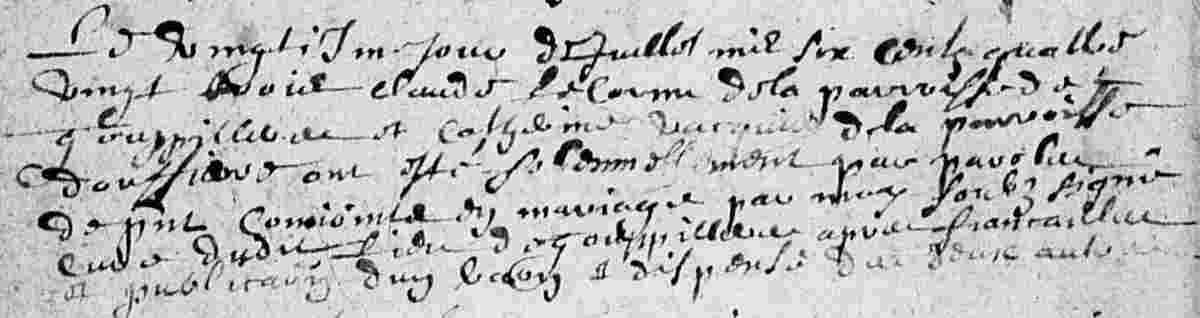 Le vingtiesme jour de Juillet mil six cents quattre
vingt trois claude leCornu de la parroisse de
gouppilleres et Catherine de la parroisse
donffiere ont esté solennellement par parolles
de pnt Conioints en mariage par moy soubz signé
curé dudit lieu de gouppilleres apres fiancailles
et publicaon dun baon & dispense des deux autres